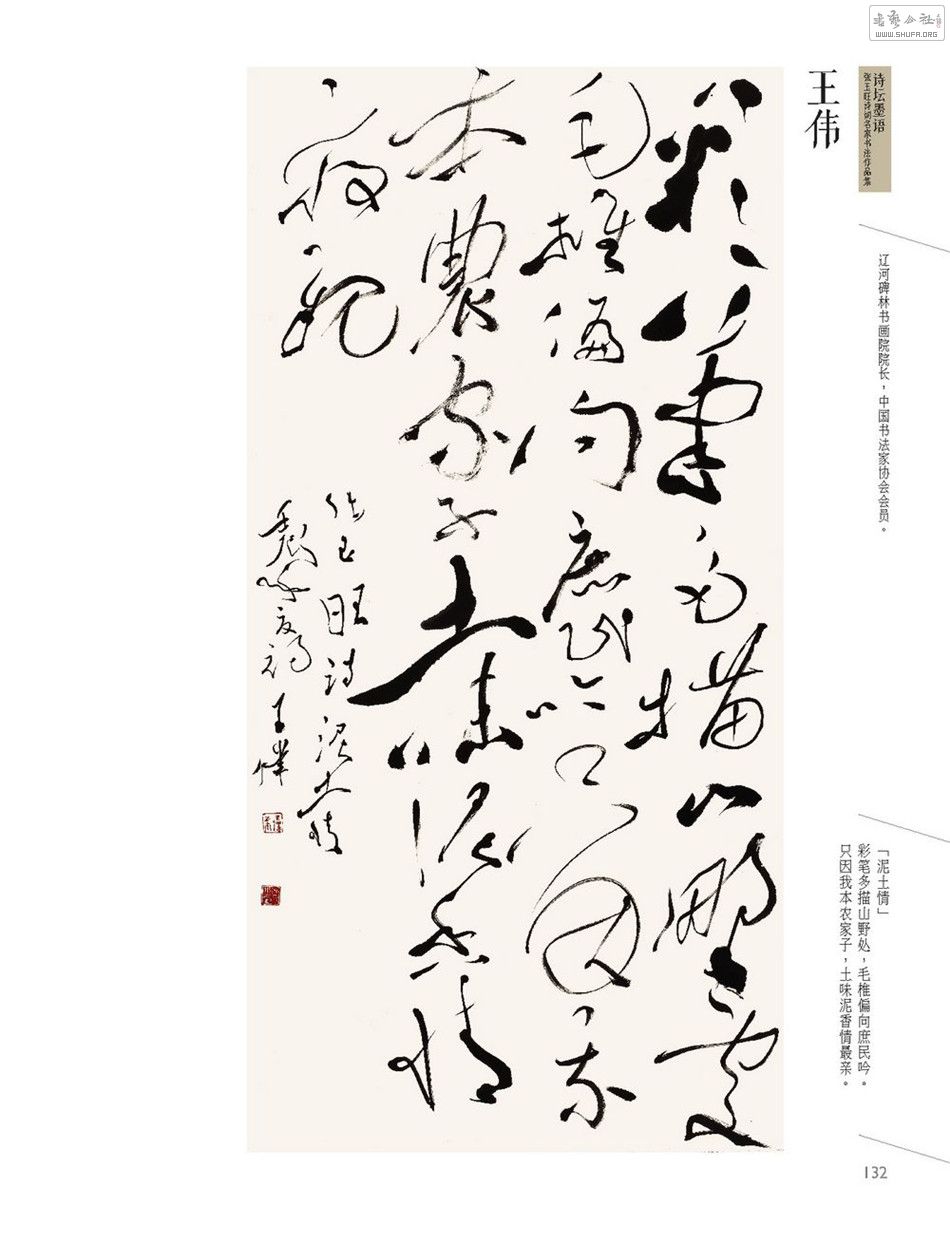 書藝公社
WWW.SHUFA.ORG
诗坛墨语
张玉旺诗词名家书法作品集
王伟
辽河碑林书画院院长，中国书法家协会会员。
「泥土情」
彩笔多描山野处，毛椎偏向庶民吟。
只因我本农家子，土味泥香情最亲。
彩筆多描山野處
毛椎偏向庶民吟只因我
本農家子土味泥香情
最親
玉旺詩泥土情
王偉
132